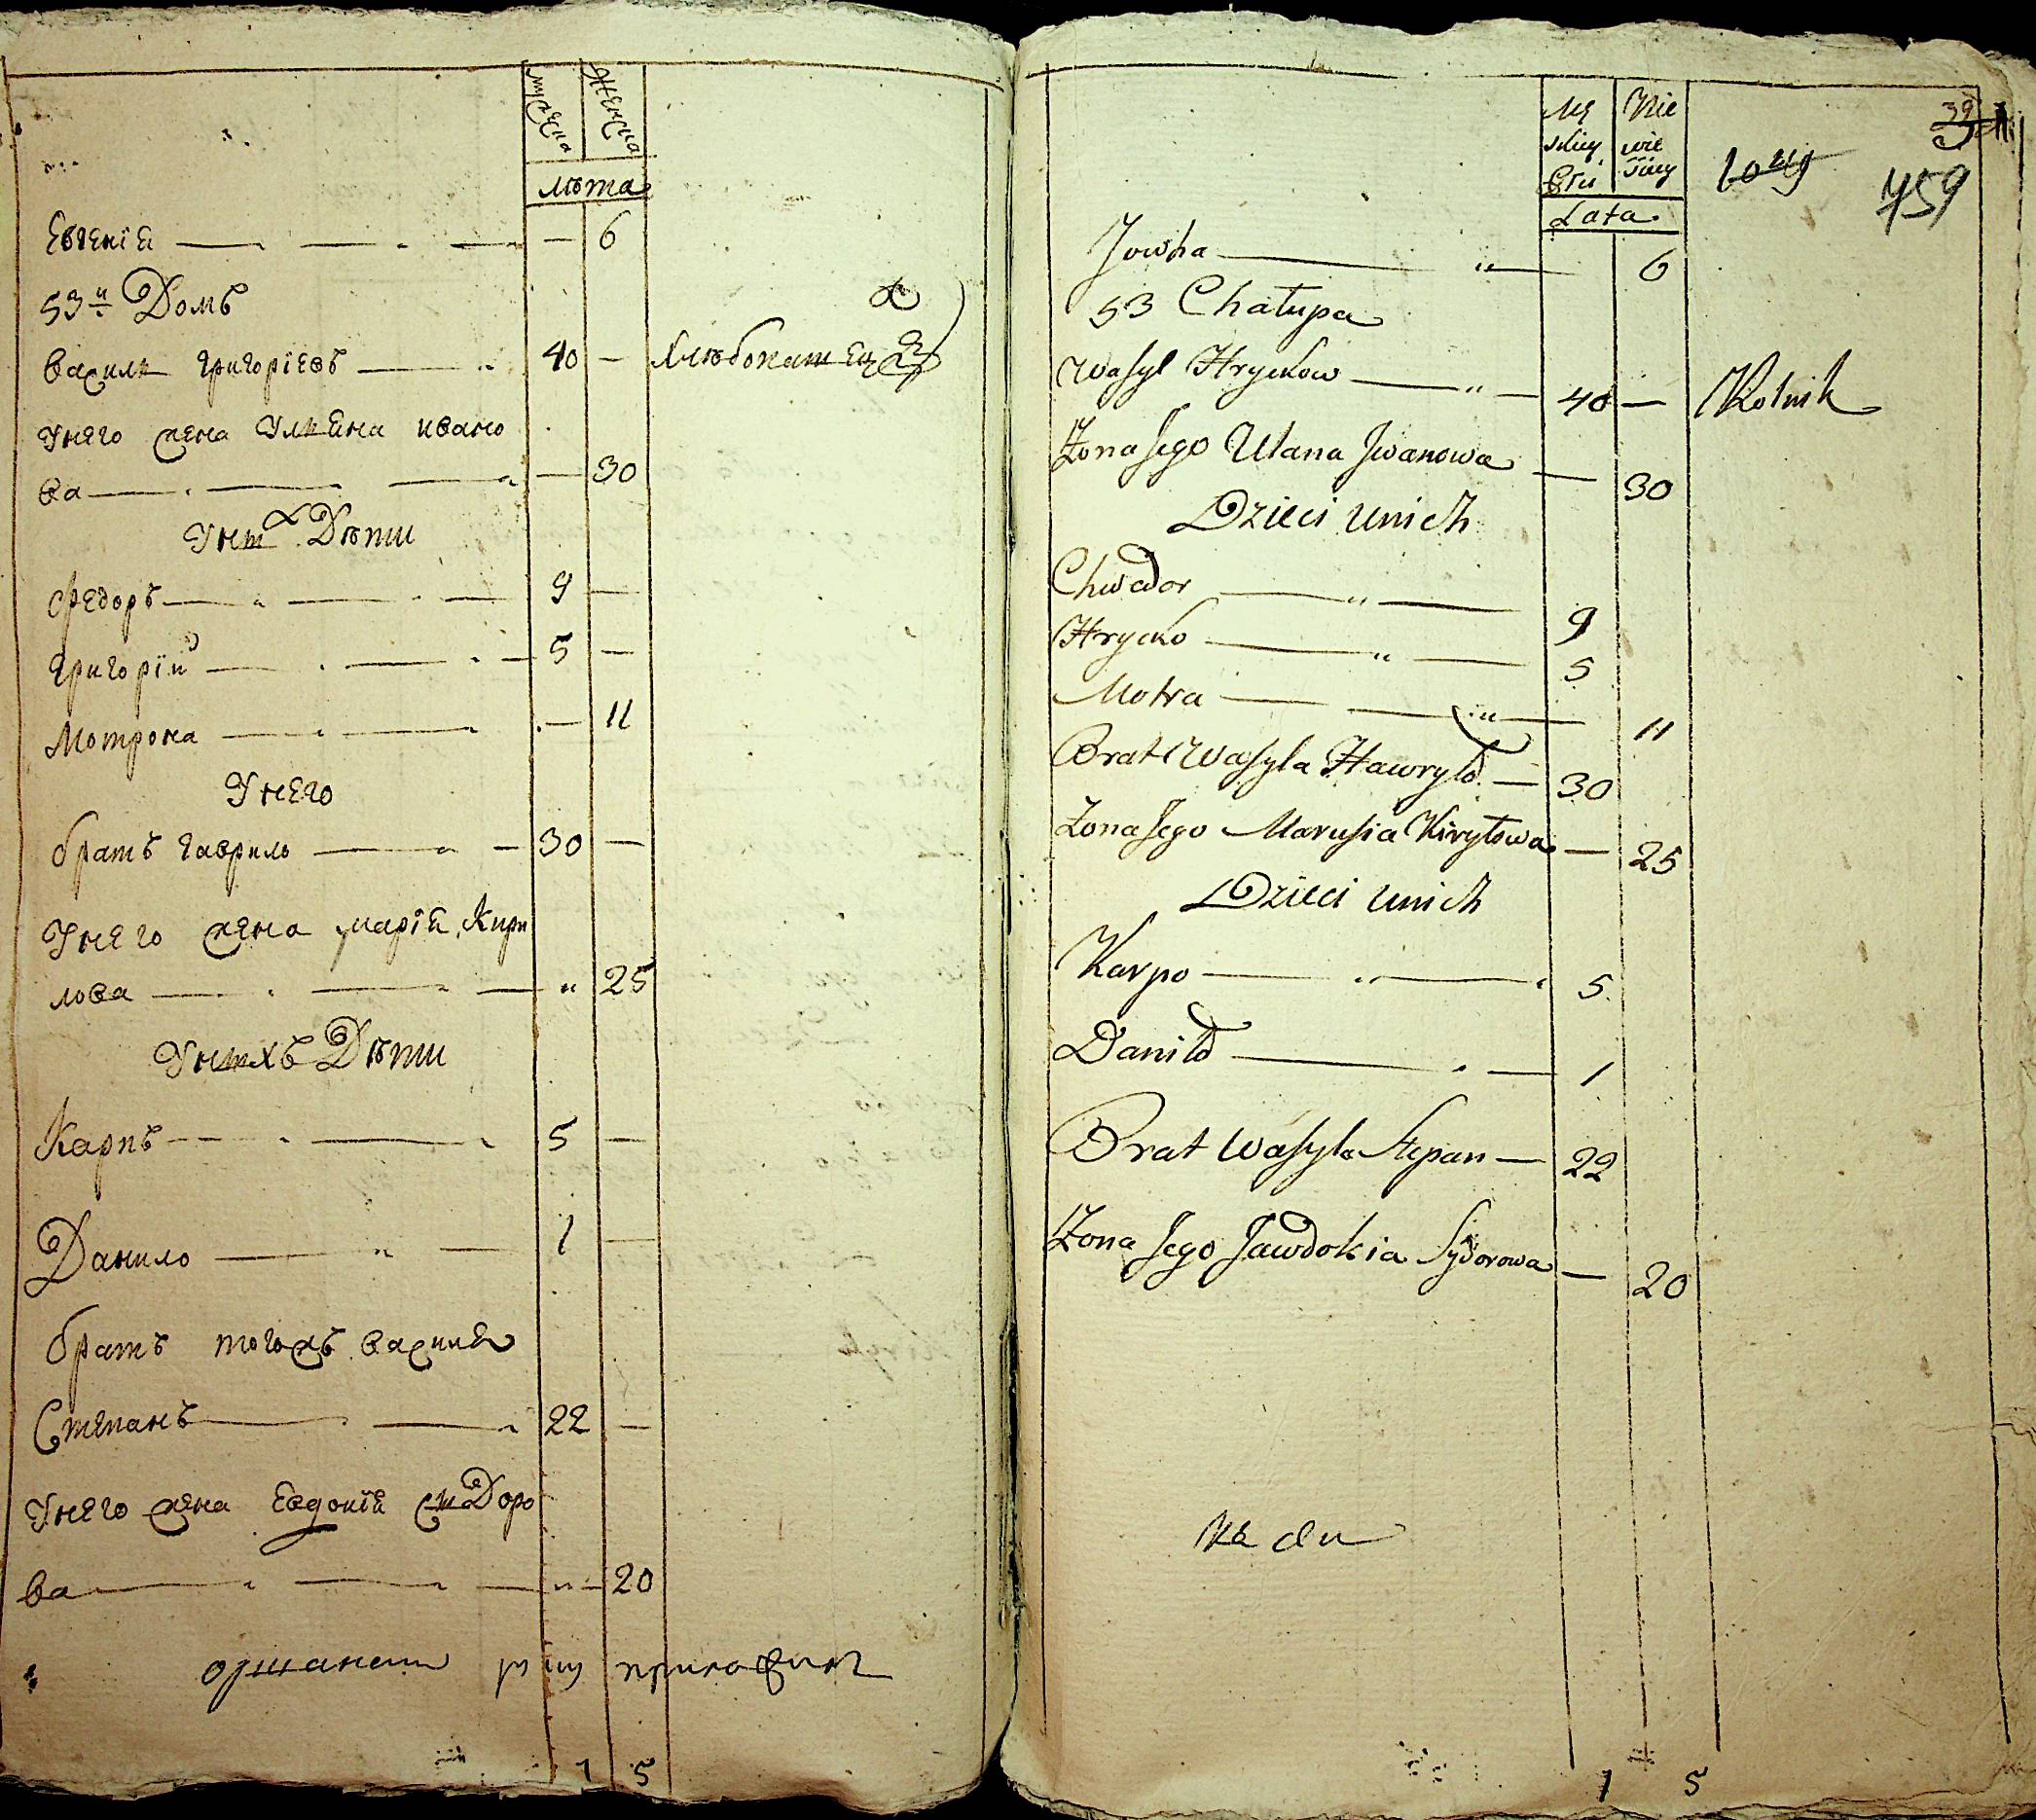 мужеска женска
лѣта
Евгенїя 6
53й Домъ
Василь Григорїевъ 40 Хлѣбопашецъ
У него жена Ульяна Ивано
ва 30
У них Дѣти
Федоръ 9
Григорїй 5
Мотрона 11
У него
братъ Гаврило 30
У него жена Марїя Кири
лова 25
У нихъ Дѣти
Карпъ 5
Данило 1
братъ тогожъ Василя
Степанъ 22
У него жена Евдокїя Сидоро
ва 20
7 5
Mę skiey Płci Nie wie ściey
Lata
759
Jowha 6
53 Chałupa
Wasyl Hryckow 40 Rolnik
Żona Jego Ulana Jwanowa 30
Dzieci u nich
Chwedor 9
Hrycko 5
Motra 11
Brat Wasyla Hawryło 30
Żona Jego Marusia Kiryłowa 25
Dzieci u nich
Karpo 5
Daniło 1
Brat Wasyla Stepan 22
Żona Jego Jawdokia Sydorowa 20
7 5